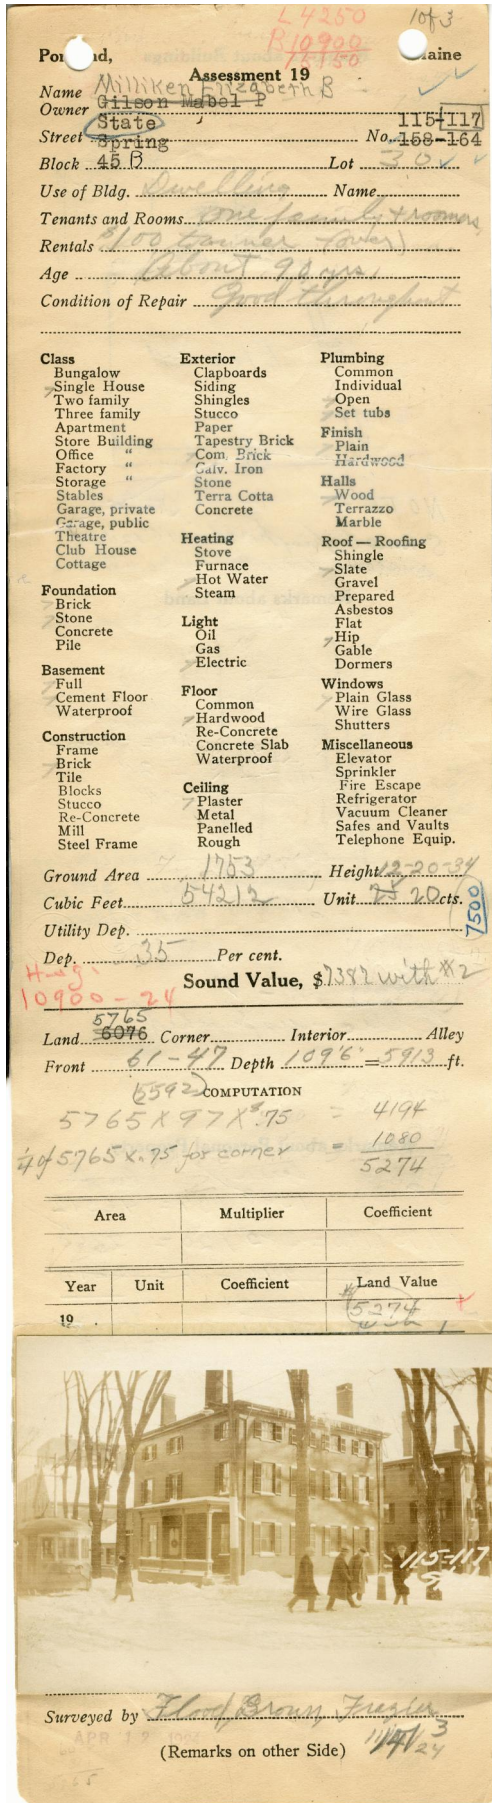 L 4250
R 10900
15150
1 of 3
Portland, Maine
Assessment 19
Name Milliken Elizabeth B
Owner Gilson Mabel P
State 115-117
Street Spring No. 158-164
Block 45 B Lot 30
Use of Bldg. Dwelling Name
Tenants and Rooms one family + roomers
Rentals $100 to owner (over)
Age About 90 yrs.
Condition of Repair Good throughout
Class
Bungalow
Single House
Two family
Three family
Apartment
Store Building
Office "
Factory "
Storage "
Stables
Garage, private
Garage, public
Theatre
Club House
Cottage
Foundation
Brick
Stone
Concrete
Pile
Basement
Full
Cement Floor
Waterproof
Construction
Frame
Brick
Tile
Blocks
Stucco
Re-Concrete
Mill
Steel Frame
Exterior
Clapboards
Siding
Shingles
Stucco
Paper
Tapestry Brick
Com. Brick
Galv. Iron
Stone
Terra Cotta
Concrete
Heating
Stove
Furnace
Hot Water
Steam
Light
Oil
Gas
Electric
Floor
Common
Hardwood
Re-Concrete
Concrete Slab
Waterproof
Ceiling
Plaster
Metal
Panelled
Rough
Plumbing
Common
Individual
Open
Set tubs
Finish
Plain
Hardwood
Halls
Wood
Terrazzo
Marble
Roof — Roofing
Shingle
Slate
Gravel
Prepared
Asbestos
Flat
Hip
Gable
Dormers
Windows
Plain Glass
Wire Glass
Shutters
Miscellaneous
Elevator
Sprinkler
Fire Escape
Refrigerator
Vacuum Cleaner
Safes and Vaults
Telephone Equip.
Ground Area 1753 Height 12-20-34
Cubic Feet 54212 Unit 25 20 cts.
7500
Utility Dep.
Dep. 35 Per cent.
Sound Value, $7382 with #2
10900-24
5765
Land 6076 Corner Interior Alley
Front 61-47 Depth 109'6" = 5913 ft.
(5592) COMPUTATION
5765 X 97 X $.75 = 4194
1/4 of 5765 X .75 for corner = 1080
5274
Area Multiplier Coefficient
Year Unit Coefficient Land Value
19 $5274
115-117
Surveyed by Flood, Brown, Frazier
(Remarks on other Side)
3
24